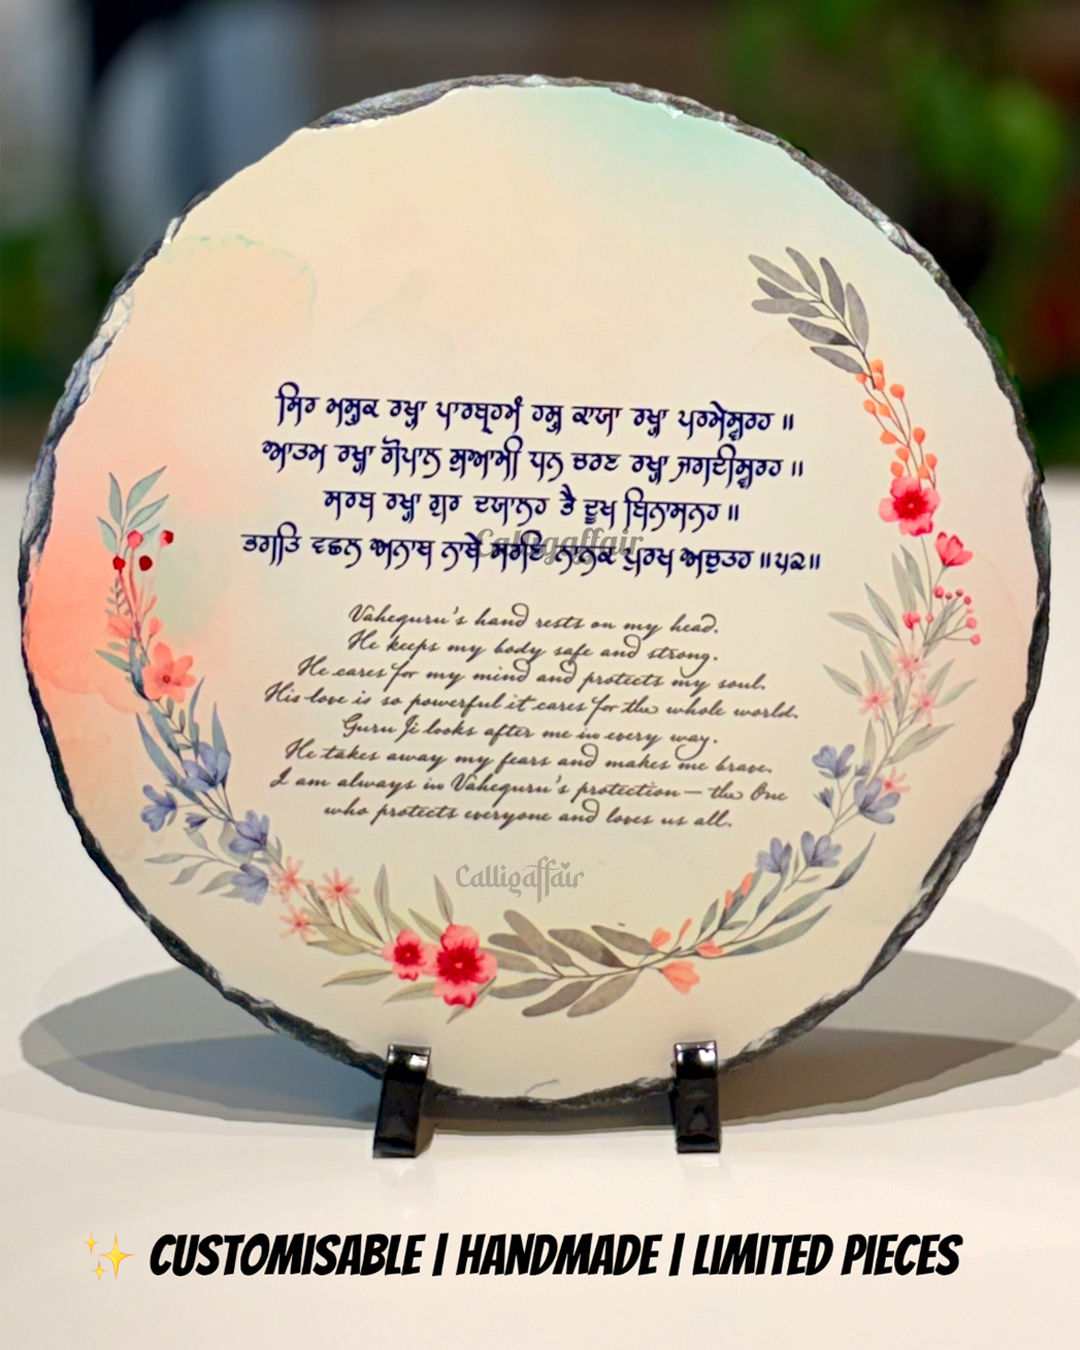 ਸਿਰ ਮਸ੍ਤਕ ਰਖ੍ਯਾ ਪਾਰਬ੍ਰਹਮੰ ਹਸ੍ਤ ਕਾਯਾ ਰਖ੍ਯਾ ਪਰਮੇਸ੍ਵਰਹ ॥
ਆਤਮ ਰਖ੍ਯਾ ਗੋਪਾਲ ਸੁਆਮੀ ਧਨ ਚਰਣ ਰਖ੍ਯਾ ਜਗਦੀਸ੍ਵਰਹ ॥
ਸਰਬ ਰਖ੍ਯਾ ਗੁਰ ਦਯਾਲਹ ਭੈ ਦੂਖ ਬਿਨਾਸਨਹ ॥
ਭਗਤਿ ਵਛਲ ਅਨਾਥ ਨਾਥੇ ਸਰਣਿ ਨਾਨਕ ਪੁਰਖ ਅਚੁਤਹ ॥੫੨॥
Calligaffair
Vaheguru's hand rests on my head.
He keeps my body safe and strong.
He cares for my mind and protects my soul.
His love is so powerful it cares for the whole world.
Guru Ji looks after me in every way.
He takes away my fears and makes me brave.
I am always in Vaheguru's protection — the One
who protects everyone and loves us all.
Calligaffair
✨ CUSTOMISABLE | HANDMADE | LIMITED PIECES